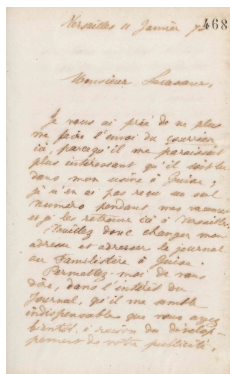 Versailles 11 Janvier 7
468
Monsieur
Je vous ai prié de ne plus
me faire l'envoi du courrier
ici parcequ'il me paraissait
plus intéressant qu'il soit lu
dans mon usine à Guise,
je n'en ai pas reçu un seul
numéro pendant mes vacances
et je les retrouve ici à Versailles.
Veuillez donc changer mon
adresse et adresser le journal
au familistère à Guise.
Permettez-moi de vous
dire, dans l'intérêt du
Journal, qu'il me semble
indispensable que vous ayez
bientôt à
pement de votre publicité.